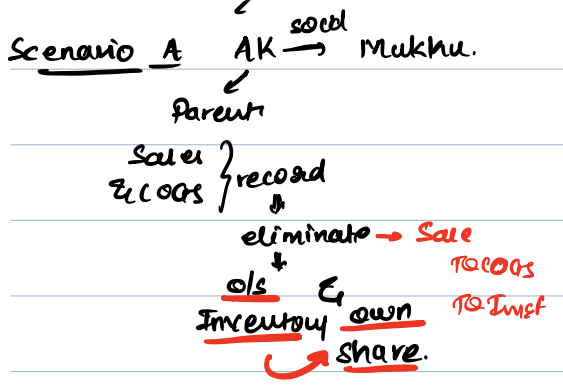 Scenario A AK sold → Mukhu.
Parent
Sales
& COGS } record
eliminate → Sale
TO COGS
o/s & TO Invst
Inventory own
share.